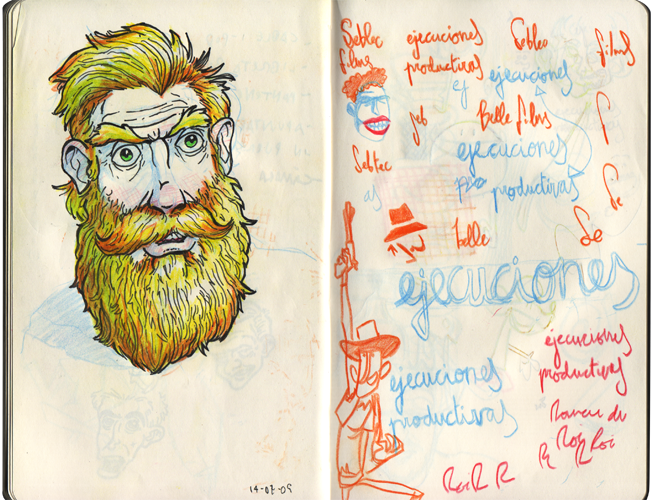 Sebtec ejecuciones Sebtec films
films productivas ej ejecuciones
jeb Belle films
Sebtec ejecuciones
as pro productivas
belle Se Se
ejecuciones
ejecuciones
productivas
ejecuciones
productivas
Roi
R R
14-07-09